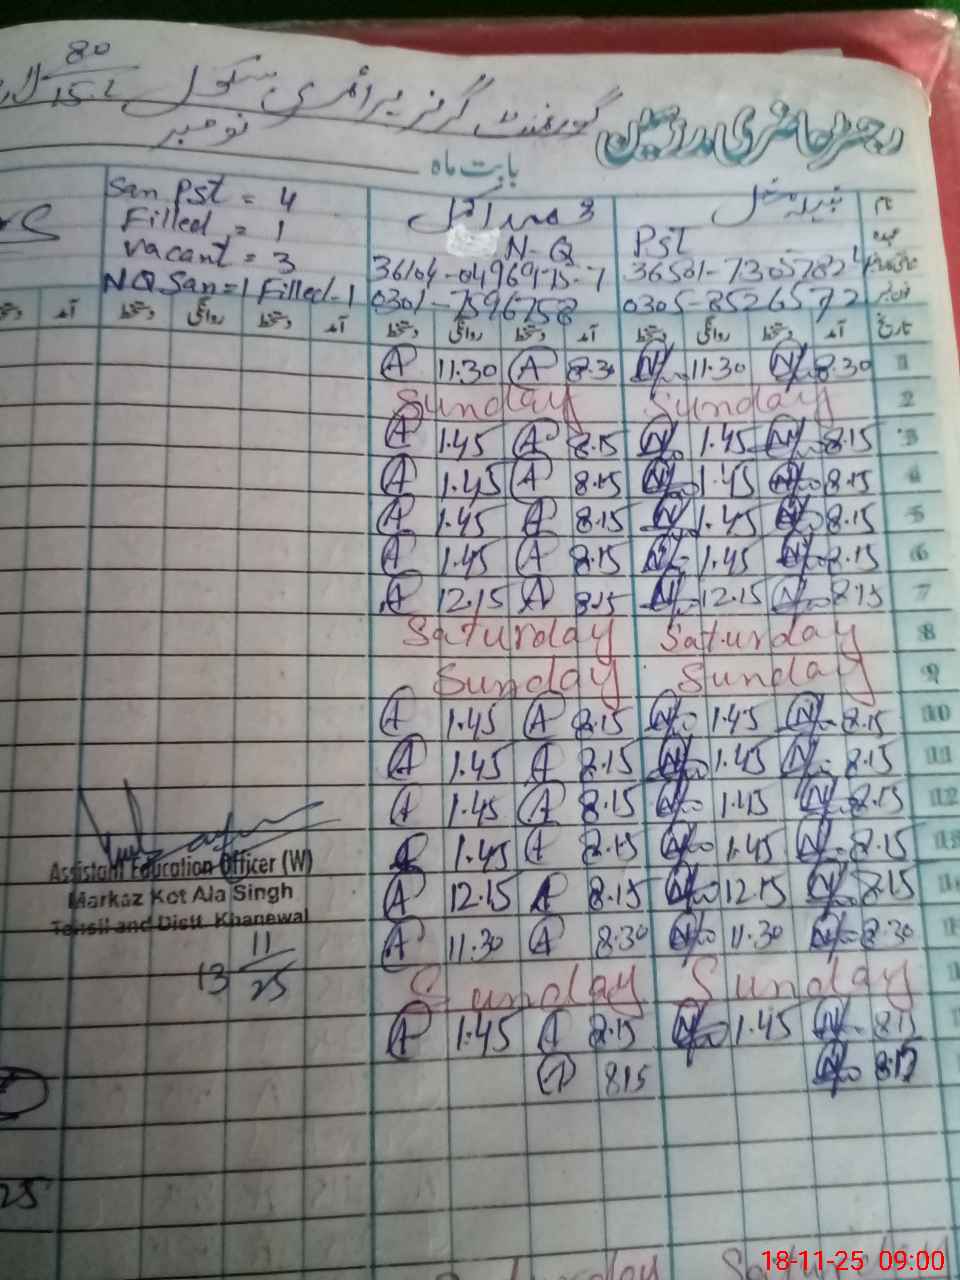 80
15-L
گورنمنٹ گرلز پرائمری سکول
رجسٹر حاضری مدرسین
نومبر
بابت ماہ
San Pst = 4
Filled = 1
Vacant = 3
NQ San=1 Filled-1
N-Q
36104-0496975-7
0301-7596758
نبیلہ
نام
عہدہ
Pst
36501-73057824
0305-8526572
تاریخ آمد دستخط روانگی دستخط آمد دستخط روانگی دستخط آمد دستخط روانگی دستخط
1 8.30 N 11.30 N 8.30 A 11.30 A
2 Sunday Sunday
3 8.15 N 1.45 N 8.15 A 1.45 A
4 8.15 N 1.45 N 8.15 A 1.45 A
5 8.15 N 1.45 N 8.15 A 1.45 A
6 8.15 N 1.45 N 8.15 A 1.45 A
7 8.15 N 12.15 N 8.15 A 12.15 A
8 Saturday Saturday
9 Sunday Sunday
10 8.15 N 1.45 N 8.15 A 1.45 A
11 8.15 N 1.45 N 8.15 A 1.45 A
12 8.15 N 1.45 N 8.15 A 1.45 A
8.15 N 1.45 N 8.15 A 1.45
8.15 N 12.15 N 8.15 A 12.15 A
8.30 N 11.30 N 8.30 A 11.30 A
Sunday Sunday
815 N 1.45 N 8.15 A 1.45 A
N 815 A
Assistant Education Officer (W)
Markaz Kot Ala Singh
Tehsil and Distt. Khanewal
13 11
25
25
Saturday
18-11-25 09:00